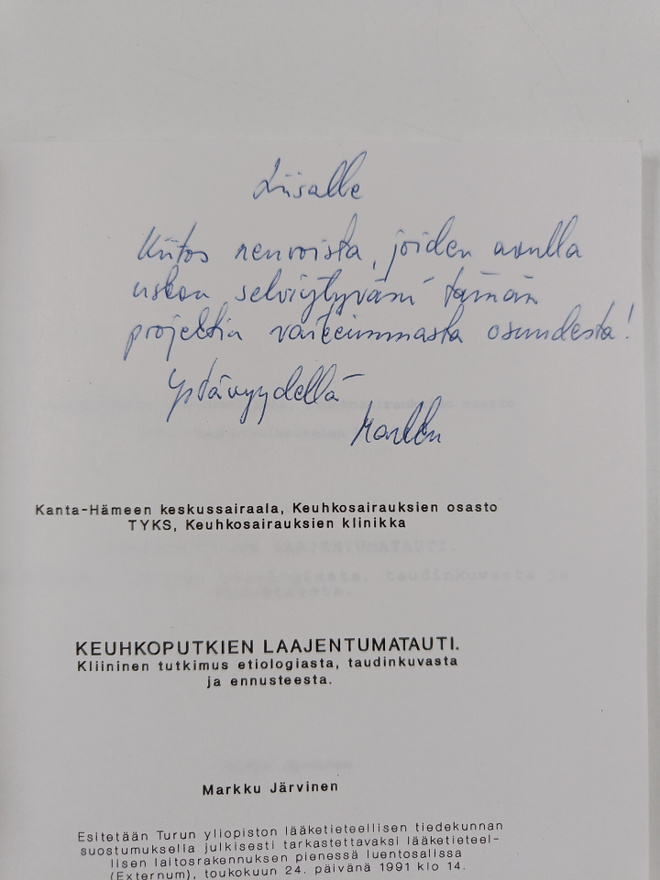 Liisalle
Kiitos neuvoista, joiden avulla
uskon selviytyväni tämän
projektin vaikeimmasta osuudesta!
Ystävyydellä
Markku
Kanta-Hämeen keskussairaala, Keuhkosairauksien osasto
TYKS, Keuhkosairauksien klinikka
KEUHKOPUTKIEN LAAJENTUMATAUTI.
Kliininen tutkimus etiologiasta, taudinkuvasta
ja ennusteesta.
Markku Järvinen
Esitetään Turun yliopiston lääketieteellisen tiedekunnan
suostumuksella julkisesti tarkastettavaksi lääketieteel-
lisen laitosrakennuksen pienessä luentosalissa
(Externum), toukokuun 24. päivänä 1991 klo 14.